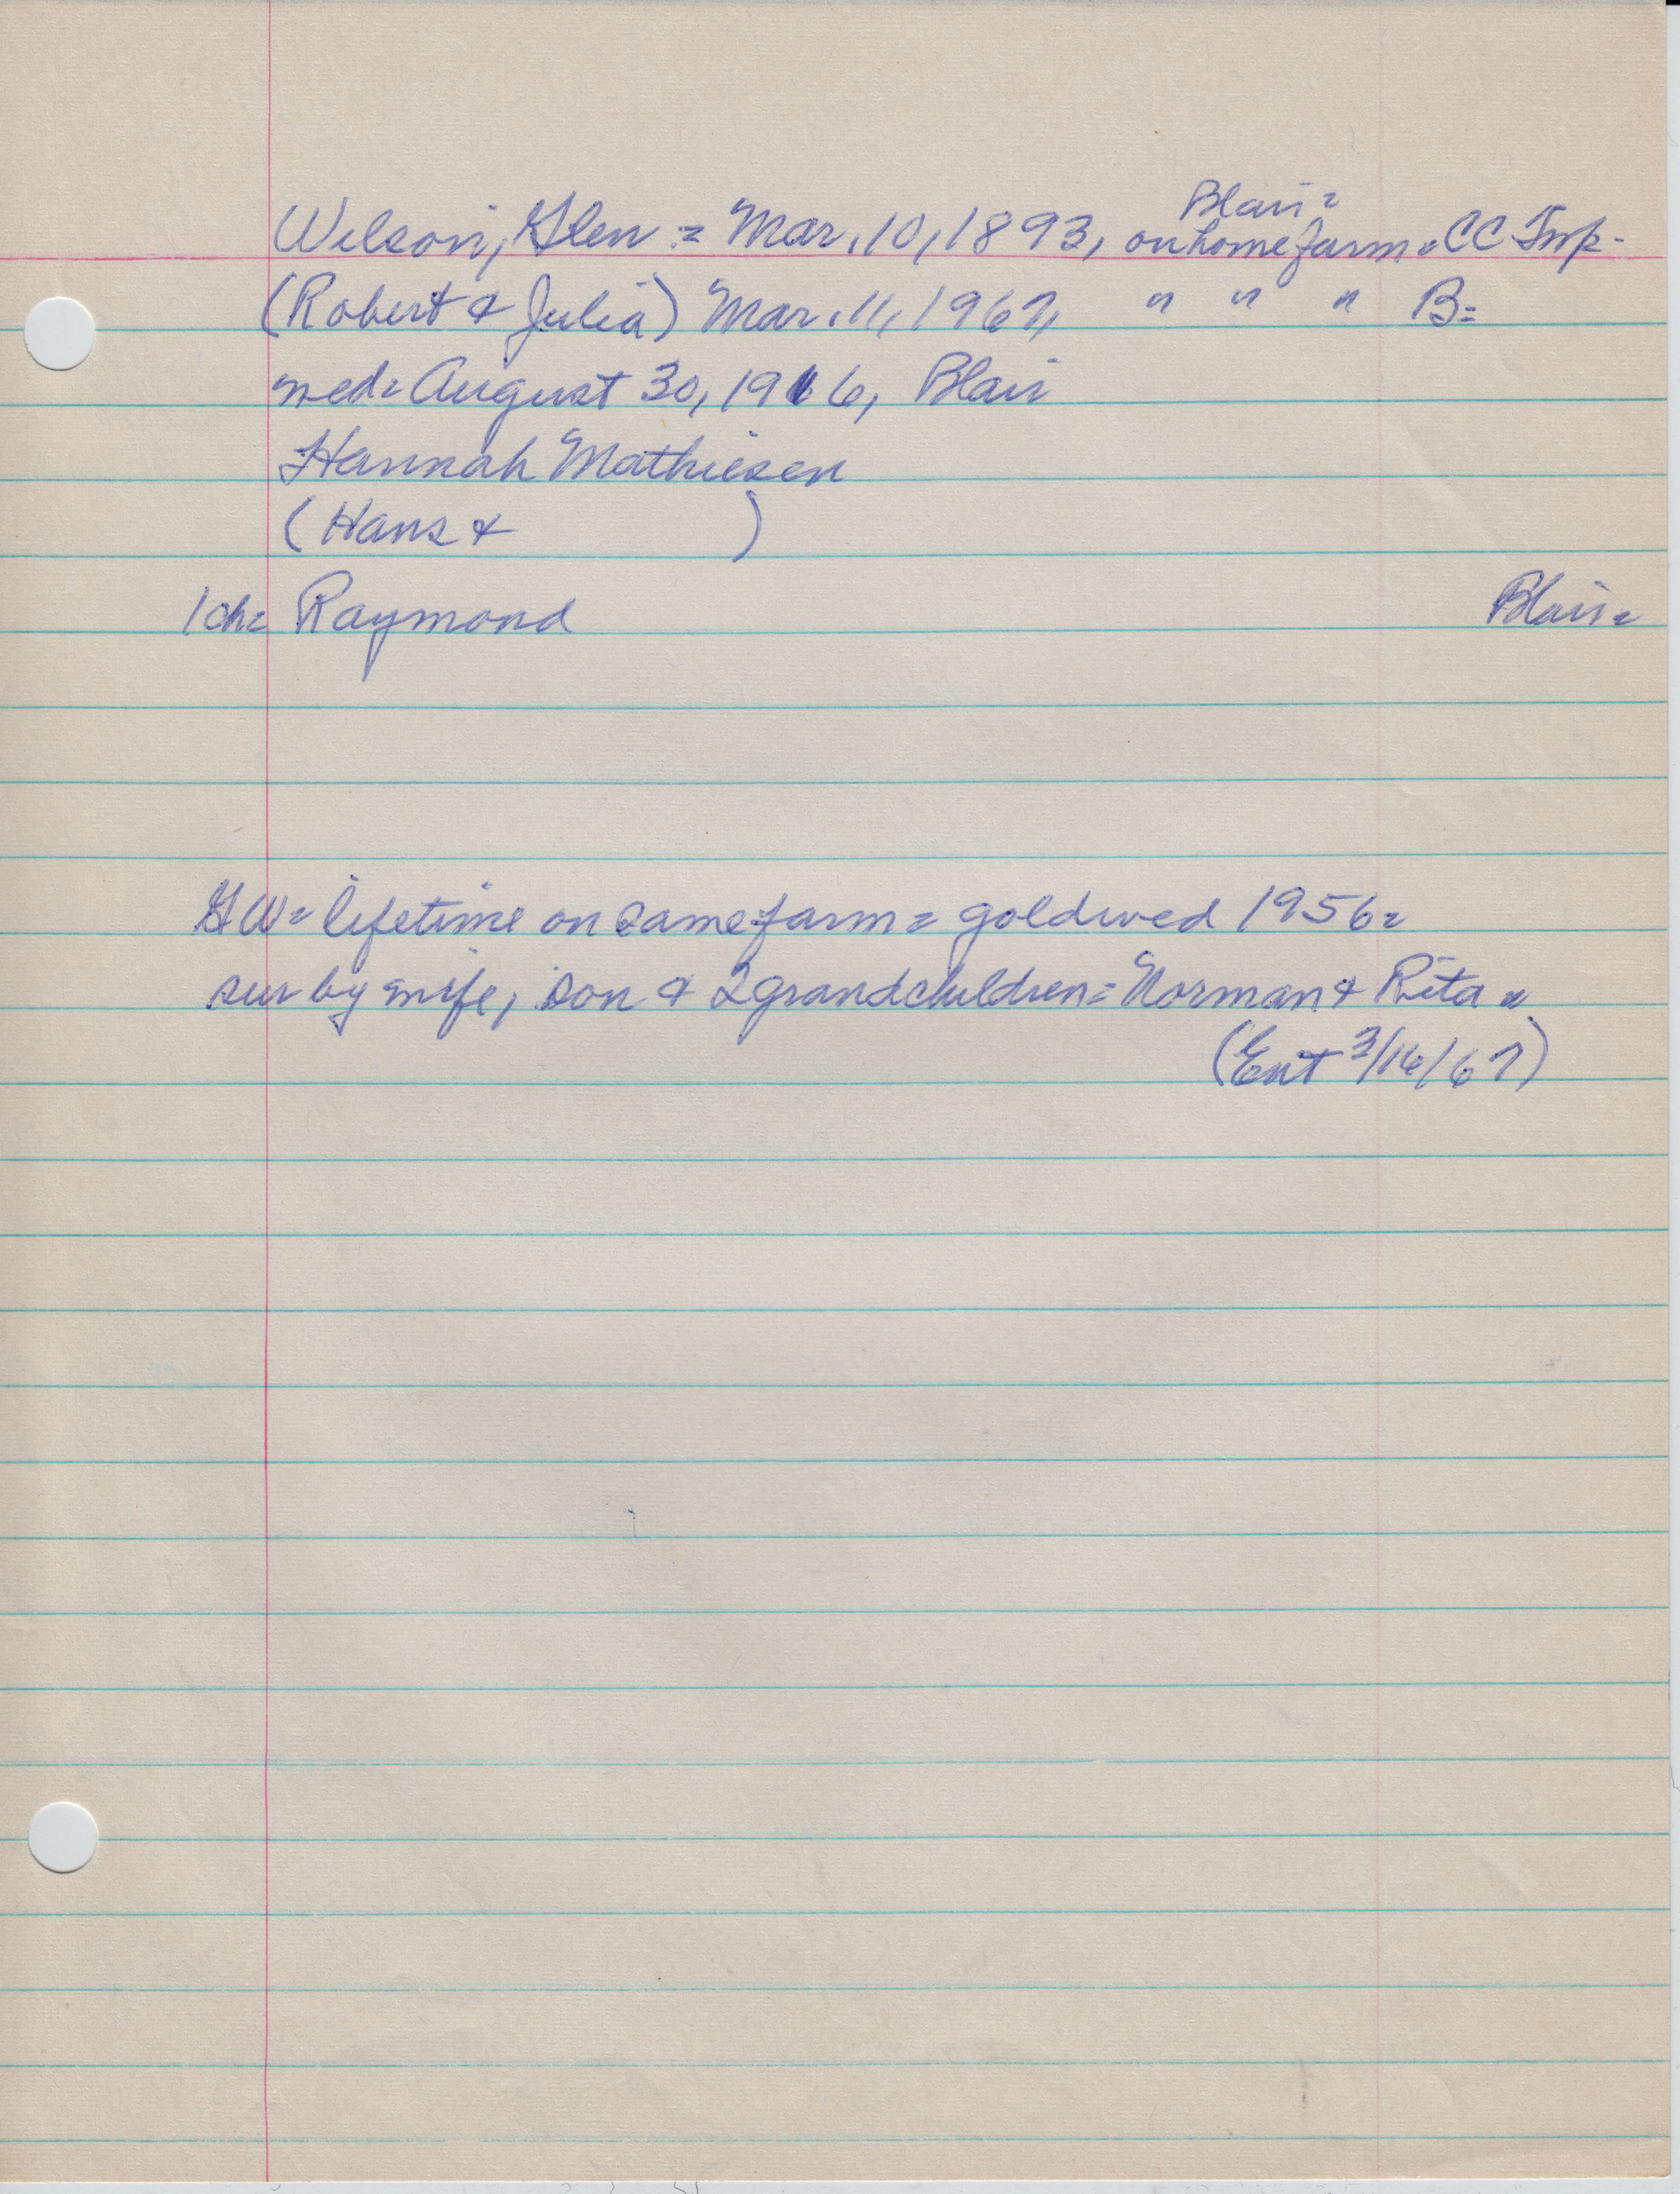 Blair=
Wilson, Glen = Mar. 10, 1893, on home farm = CC Twp.
(Robert & Julia) Mar. 11, 1967, " " " B=
wed= August 30, 1916, Blair
Hannah Mathiesen
(Hans & )
1 ch= Raymond Blair=
GW= lifetime on same farm = gold wed 1956=
sur by wife, son & 2 grandchildren = Norman & Rita =
(Ent 3/16/67)